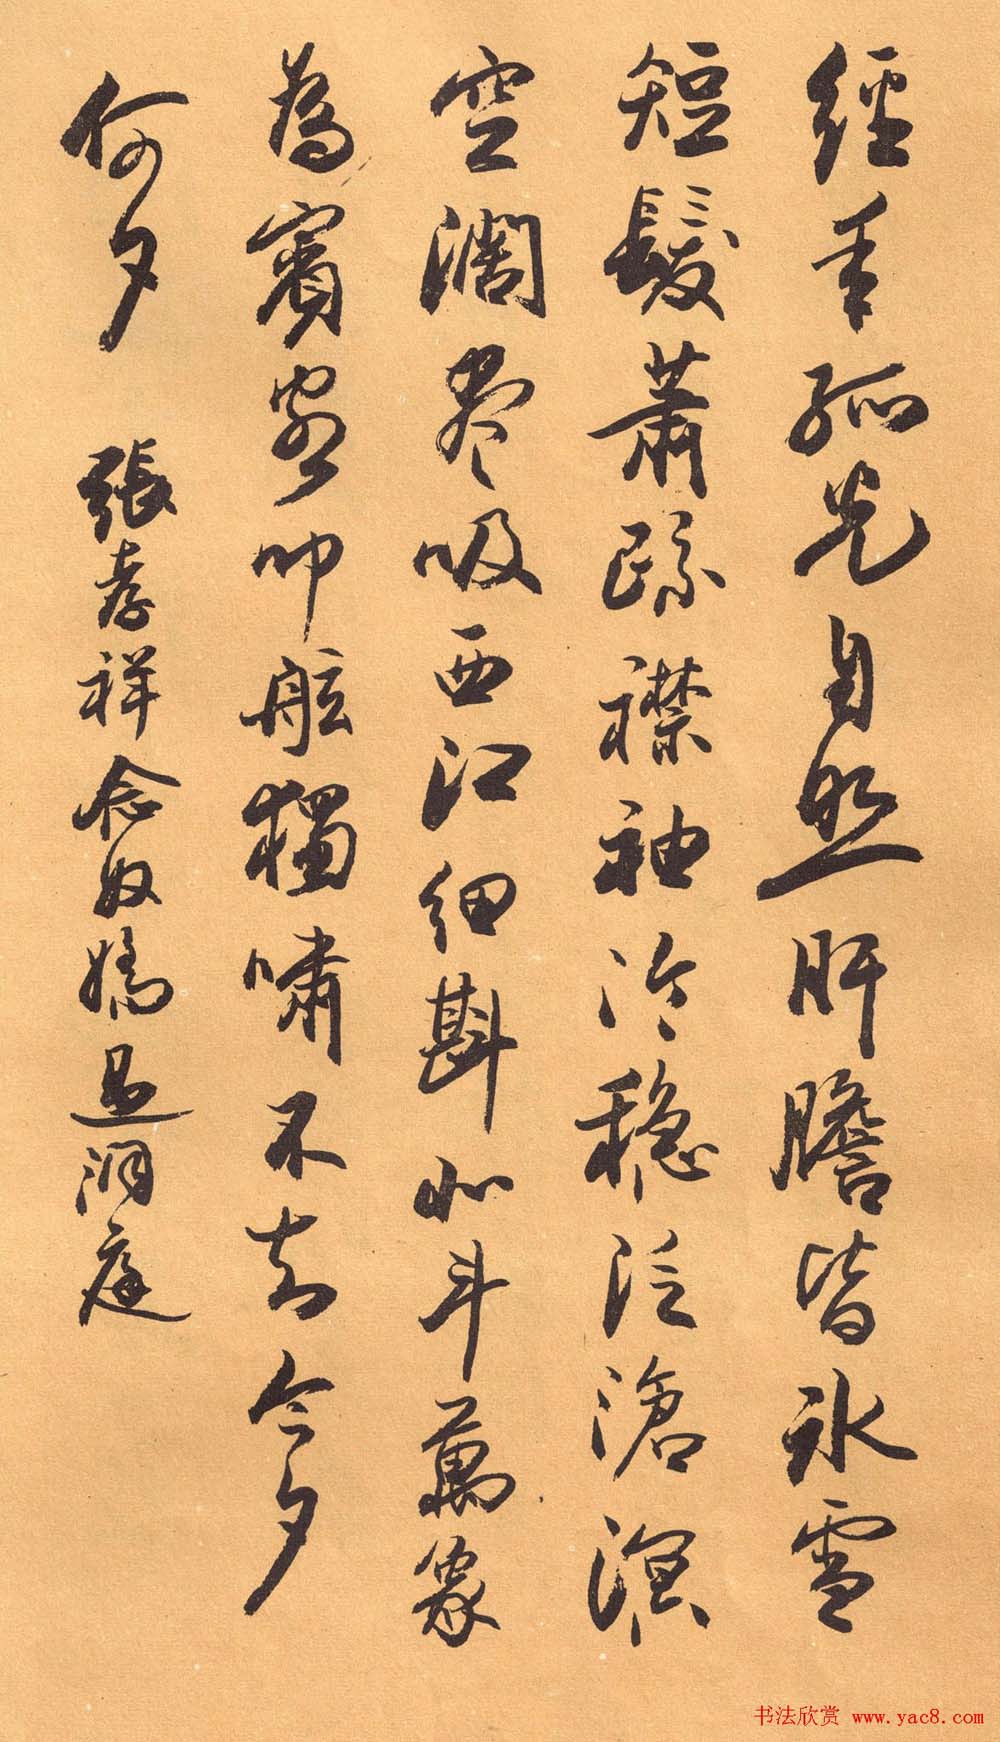 經年孤光自照肝膽皆冰雪
短髮蕭疏襟袖冷穩泛滄溟
空闊盡吸西江細斟北斗萬象
為賓客叩舷獨嘯不知今夕
何夕 張孝祥念奴嬌過洞庭
书法欣赏 www.yac8.com